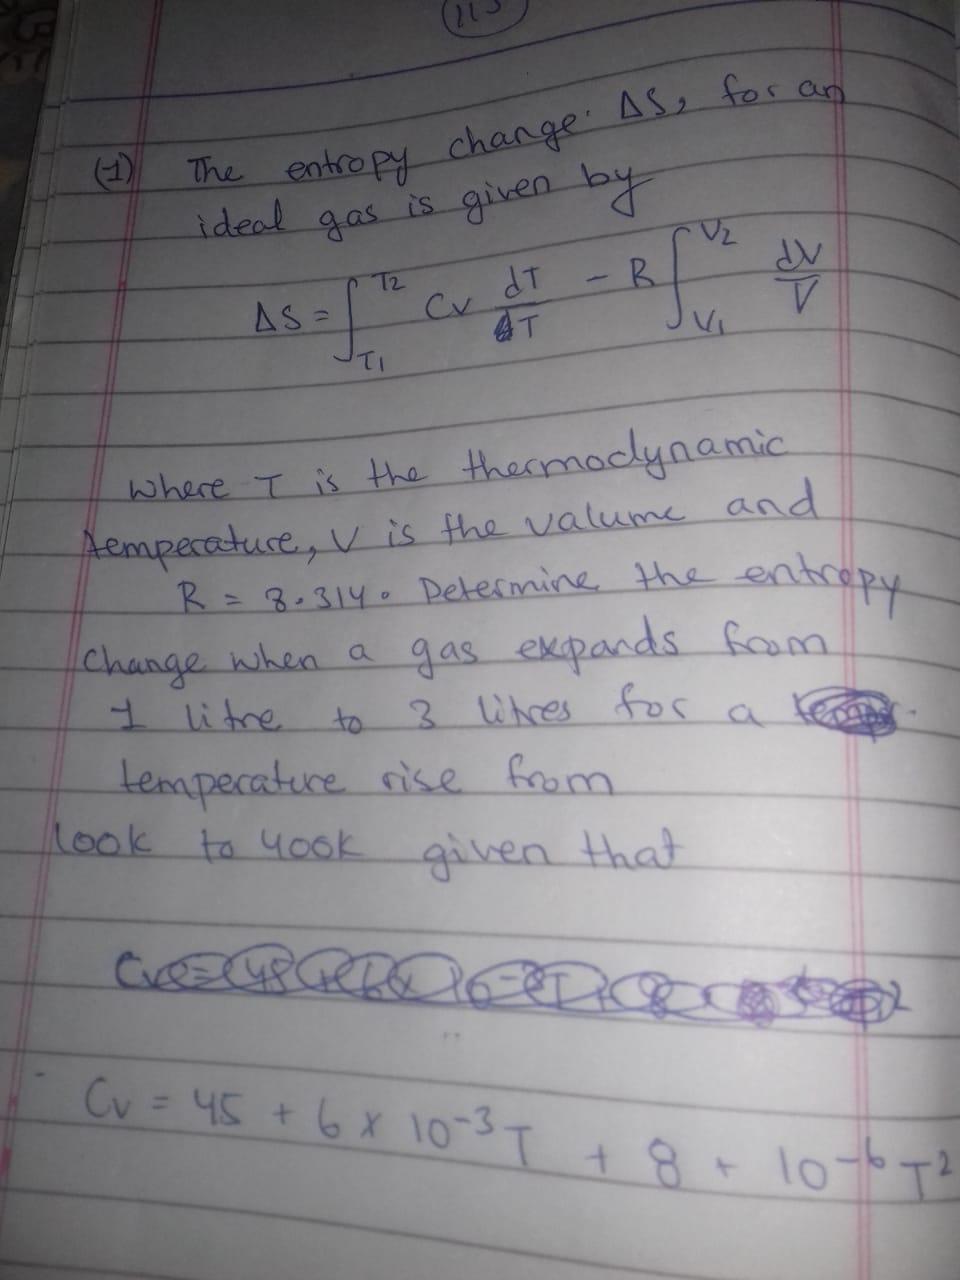 (1) The entropy change ΔS, for an
ideal gas is given by
ΔS = ∫ T2 T1 Cv dT/T - R ∫ V2 V1 dV/V
where T is the thermodynamic
temperature, V is the valume and
R = 8.314. Determine the entropy
change when a gas expands from
1 litre to 3 litres for a
temperature rise from
100k to 400k given that
Cv = 45 + 6 x 10⁻³T + 8 + 10⁻⁶T²